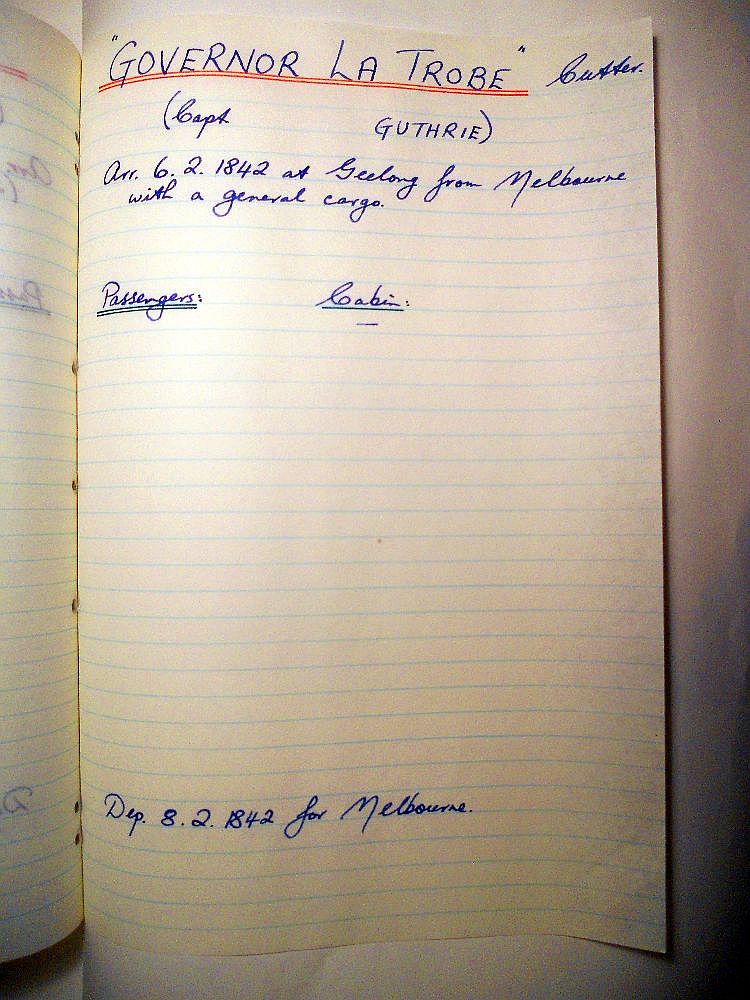 "GOVERNOR LA TROBE" Cutter.
(Capt GUTHRIE)
Arr. 6.2.1842 at Geelong from Melbourne
with a general cargo.
Passengers: Cabin:
—
Dep. 8.2.1842 for Melbourne.